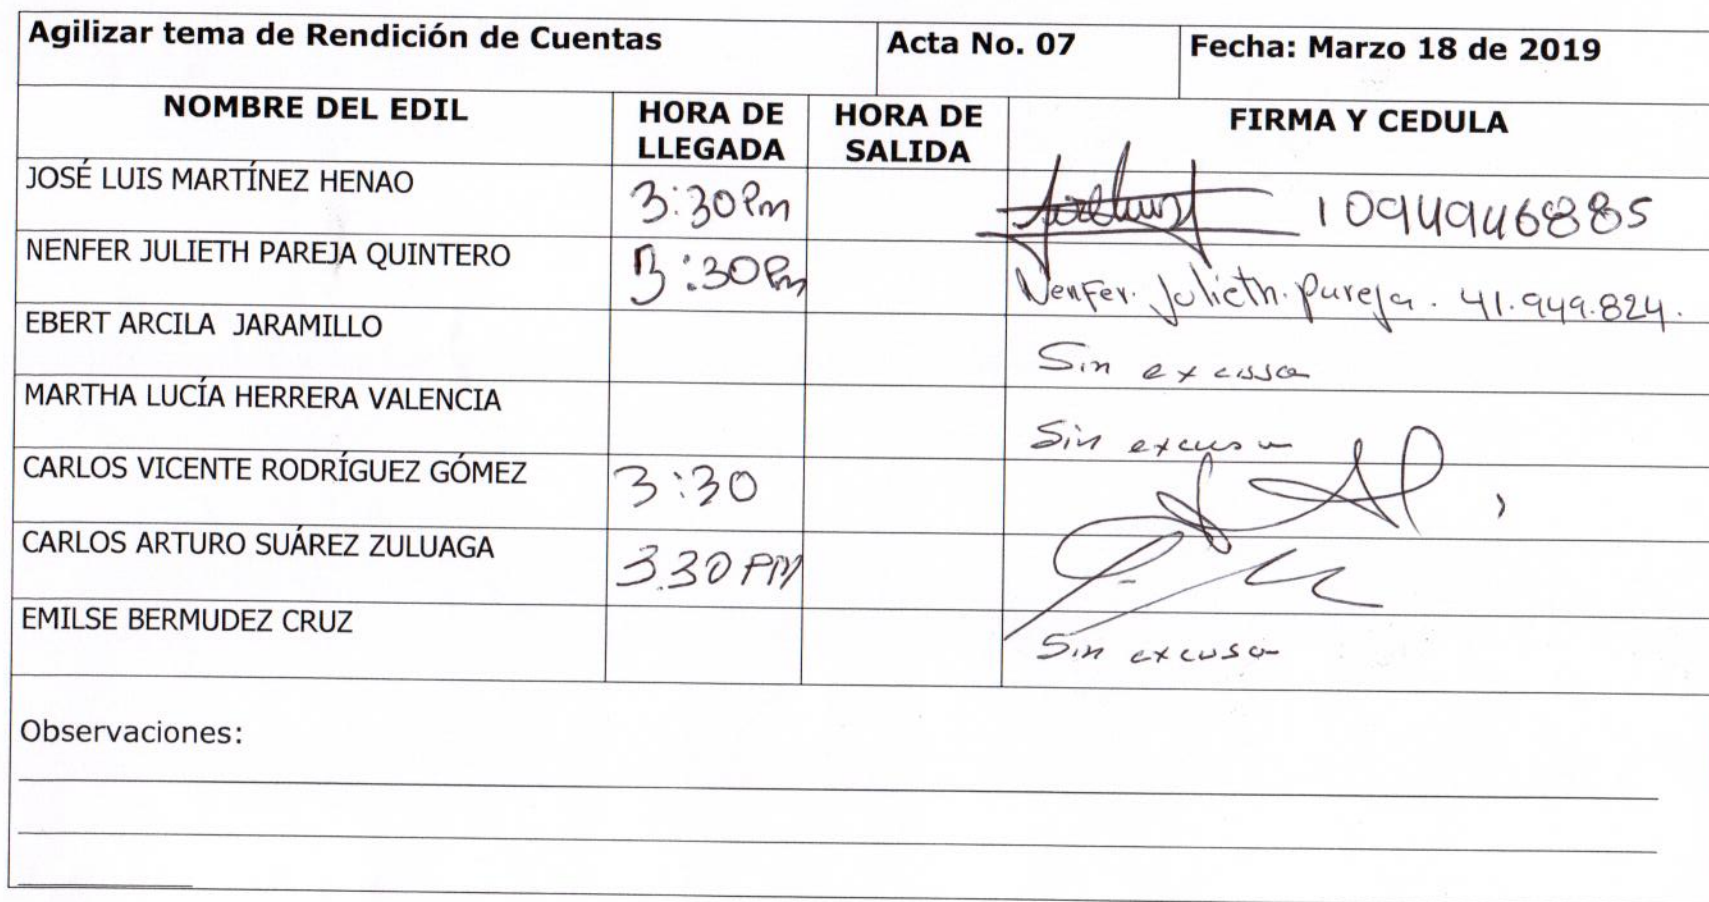 Agilizar tema de Rendición de Cuentas Acta No. 07 Fecha: Marzo 18 de 2019
NOMBRE DEL EDIL HORA DE LLEGADA HORA DE SALIDA FIRMA Y CEDULA
JOSÉ LUIS MARTÍNEZ HENAO 3:30 Pm 1094946885
NENFER JULIETH PAREJA QUINTERO 3:30 Pm Nenfer. Julieth. Pareja. 41.949.824.
EBERT ARCILA JARAMILLO Sin excusa
MARTHA LUCÍA HERRERA VALENCIA Sin excusa
CARLOS VICENTE RODRÍGUEZ GÓMEZ 3:30
CARLOS ARTURO SUÁREZ ZULUAGA 3.30 PM
EMILSE BERMUDEZ CRUZ Sin excusa
Observaciones: